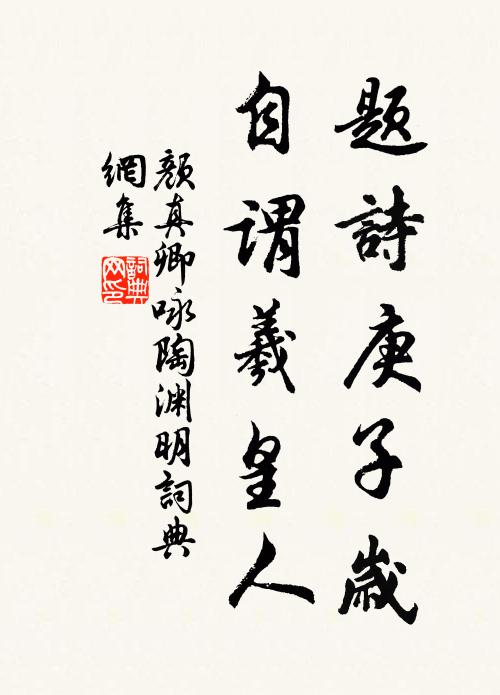 題詩庚子歲
自謂羲皇人
顏真卿咏陶淵明詞典
網集
詞典
网记